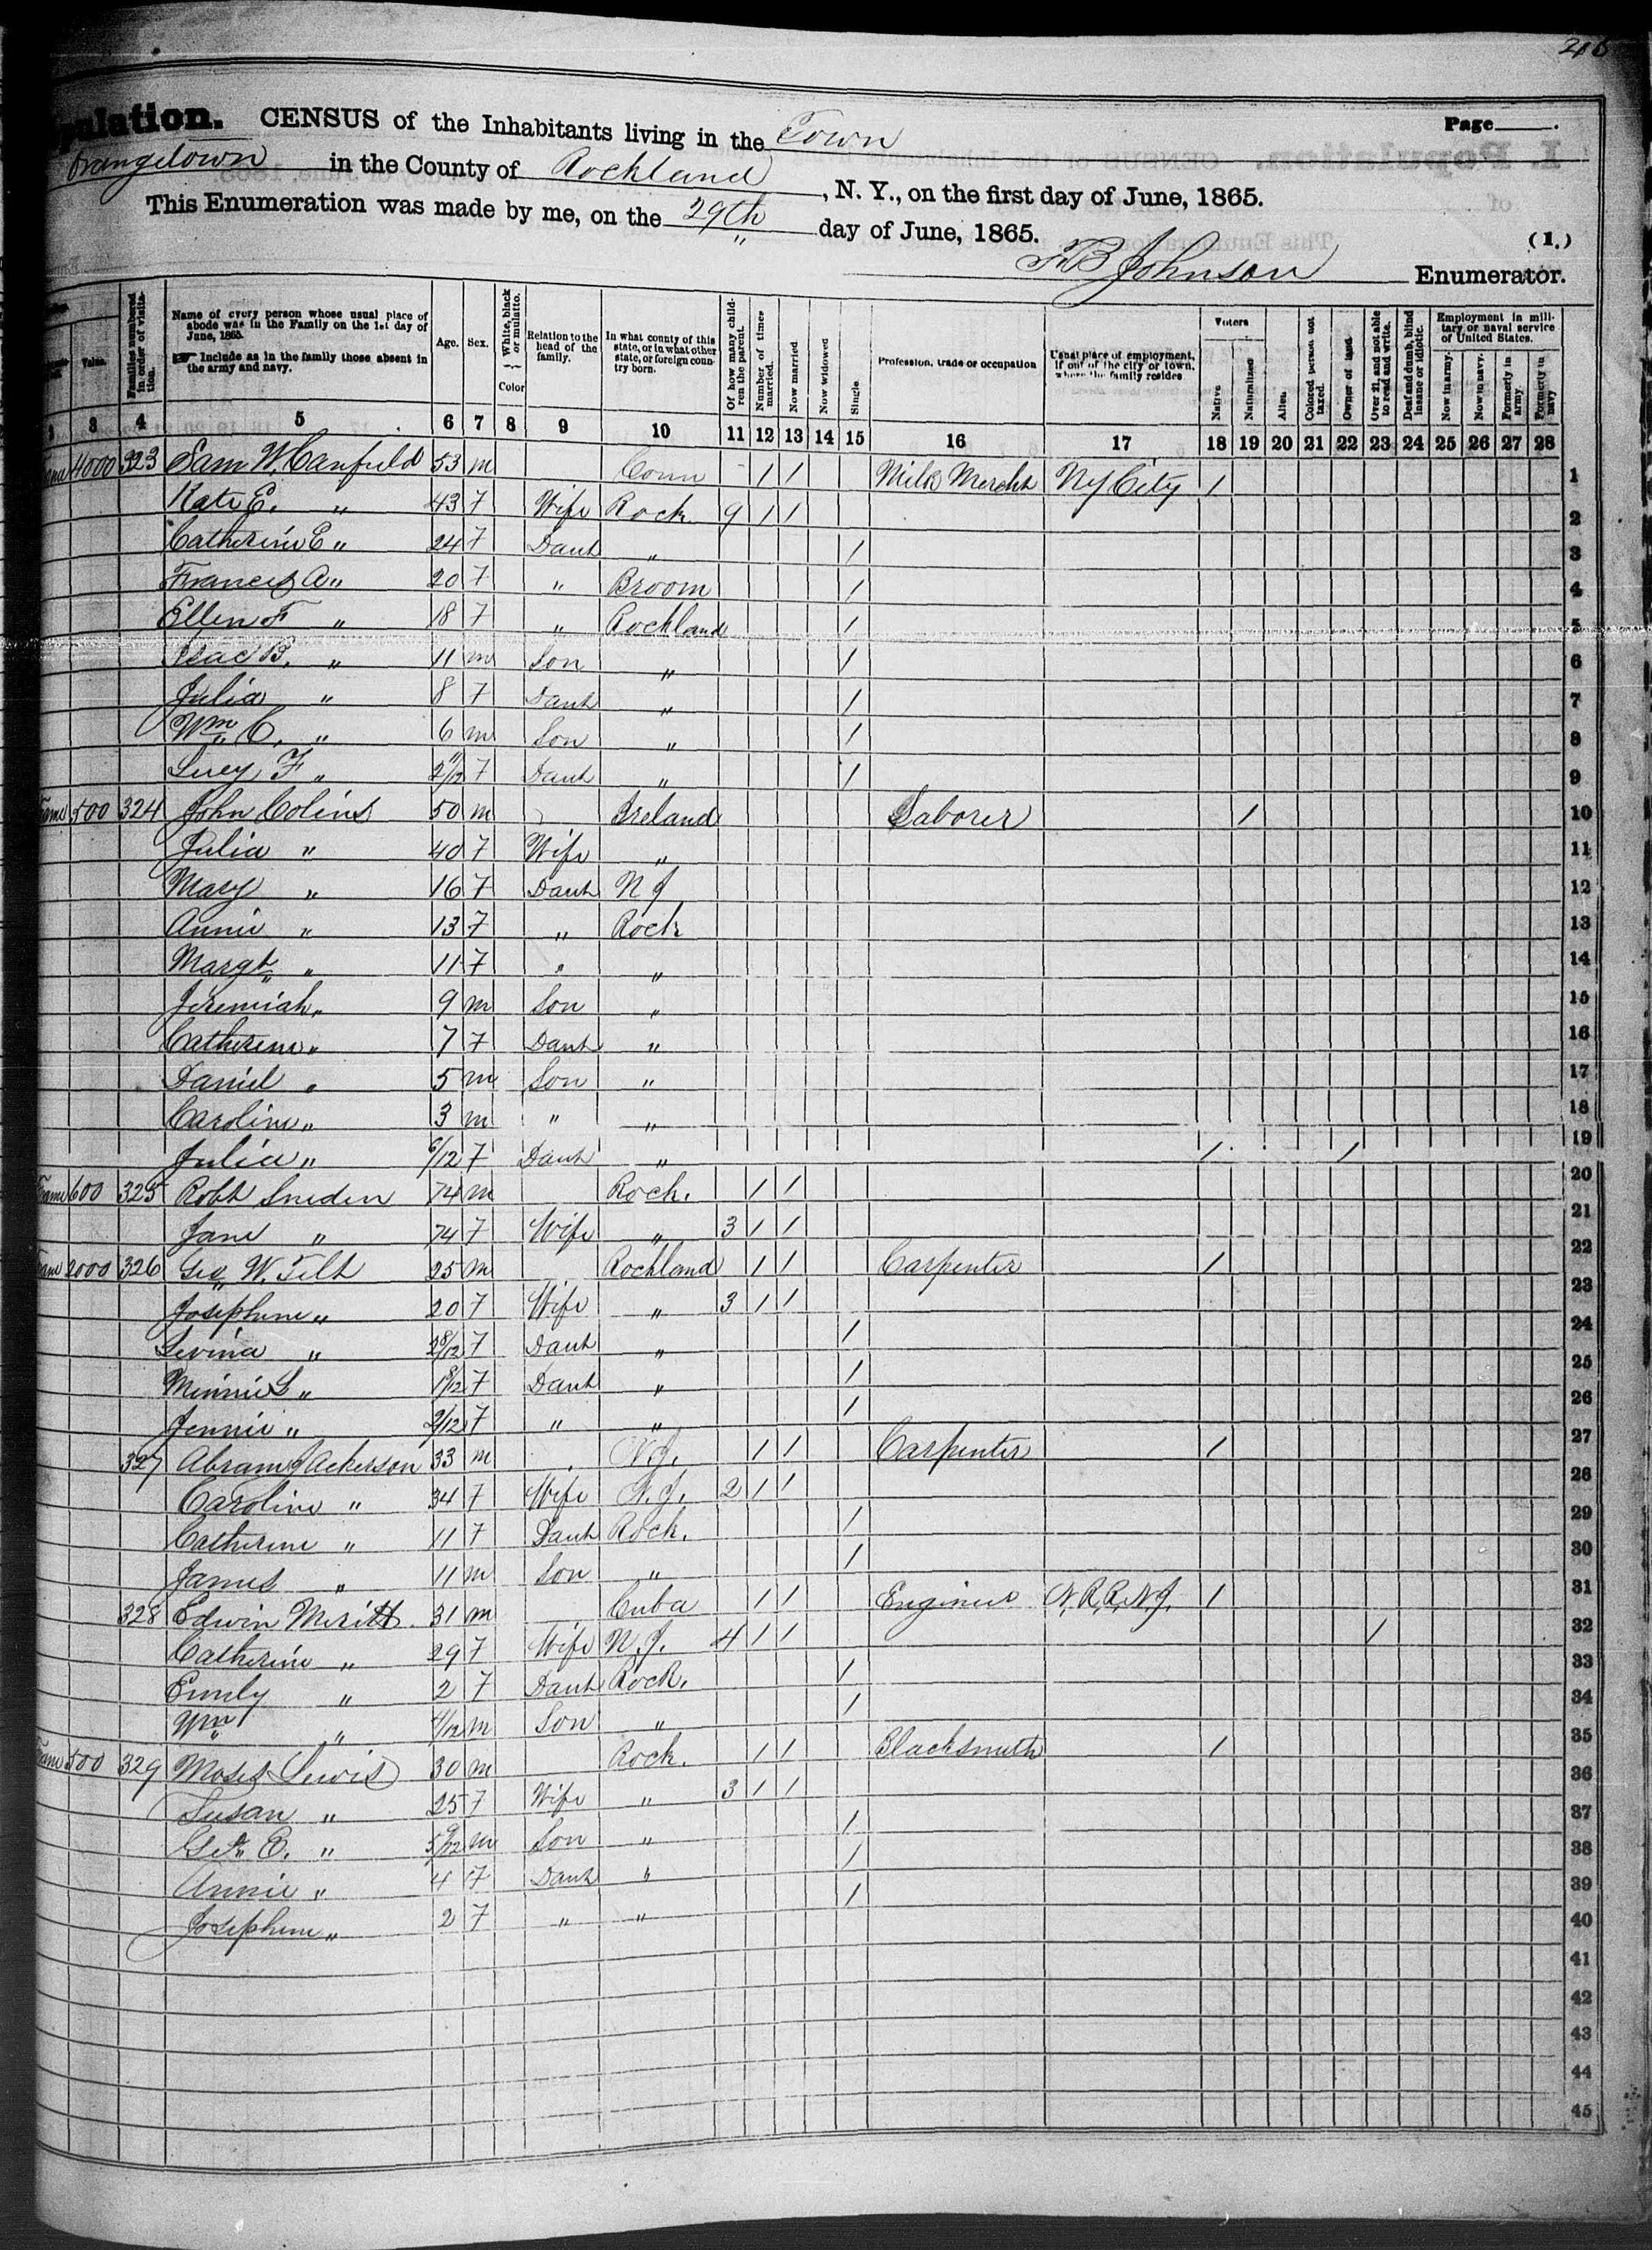 246
Population. CENSUS of the Inhabitants living in the Town
Orangetown in the County of Rockland, N. Y., on the first day of June, 1865.
This Enumeration was made by me, on the 29th day of June, 1865.
Page
(1.)
Johnson Enumerator.
Value.
Families numbered in order of visitation.
Name of every person whose usual place of abode was in the Family on the 1st day of June, 1865. Include as in the family those absent in the army and navy.
Age.
Sex.
White, black or mulatto. Color
Relation to the head of the family.
In what county of this state, or in what other state, or foreign country born.
Of how many children the parent.
Number of times married.
Now married
Now widowed
Single
Profession, trade or occupation
Usual place of employment, if out of the city or town, where the family resides
Voters
Native
Naturalized
Alien
Colored person not taxed.
Owner of land.
Over 21, and not able to read and write.
Deaf and dumb, blind insane or idiotic.
Employment in military or naval service of United States.
Now in army.
Now in navy.
Formerly in army
Formerly in navy
3 4 5 6 7 8 9 10 11 12 13 14 15 16 17 18 19 20 21 22 23 24 25 26 27 28
4000 323 Sam W. Canfield 53 m Conn 1 1 Milk Mercht NY City 1 1
Kate E. " 43 F Wife Rock. 9 1 1 2
Catherine E " 24 F Dauh " 1 3
Frances A " 20 F " Broom 1 4
Ellen F " 18 F " Rockland 1 5
Isac B. " 11 m Son " 1 6
Julia " 8 F Dauh " 1 7
Wm C. " 6 m Son " 1 8
Lucy F " F Dauh " 1 9
Frame 500 324 John Colins 50 m Ireland Laborer 1 10
Julia " 40 F Wife " 11
Mary " 16 F Dauh N J 12
Annie " 13 F " Rock 13
Margt " 11 F " " 14
Jeremiah " 9 m Son " 15
Catherine " 7 F Dauh " 16
Daniel " 5 m Son " 17
Caroline " 3 m " " 18
Julia " 6/12 F Dauh " 1 1 19
Frame 600 325 Robt Sneden 74 m Rock. 1 1 20
Jane " 74 F Wife " 3 1 1 21
Frame 2000 326 Geo W. Tilt 25 m Rockland 1 1 Carpenter 1 22
Josephine " 20 F Wife " 3 1 1 23
Levina " 2 8/12 F Dauh " 1 24
Minnie L " F Dauh " 1 25
Jennie " 2/12 F " " 1 26
327 Abram J Ackerson 33 m N.J. 1 1 Carpenter 1 27
Caroline " 34 F Wife N.J. 2 1 1 28
Catherine " 11 F Dauh Rock. 1 29
James " 11 m Son " 1 30
328 Edwin Meritt 31 m Cuba 1 1 Engineer N.R.R.N.J. 1 31
Catherine " 29 F Wife N.J. 4 1 1 1 32
Emily " 2 F Dauh Rock. 1 33
Wm " 4/12 m Son " 1 34
Frame 500 329 Moses Lewis 30 m Rock. 1 1 Blacksmith 1 35
Susan " 25 F Wife " 3 1 1 36
Geo E. " 5 9/12 m Son " 1 37
Annie " 4 F Dauh " 1 38
Josephine " 2 F " " 1 39
40
41
42
43
44
45